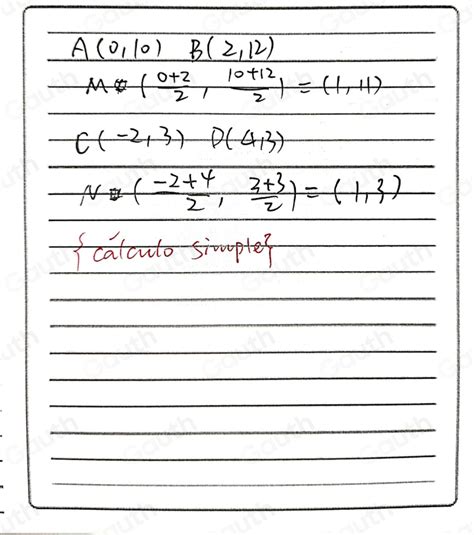 A(0,10) B(2,12)
M (0+2/2, 10+12/2) = (1,11)
C(-2,3) D(4,3)
N (-2+4/2, 3+3/2) = (1,3)
{cálculo simple}
Gauth